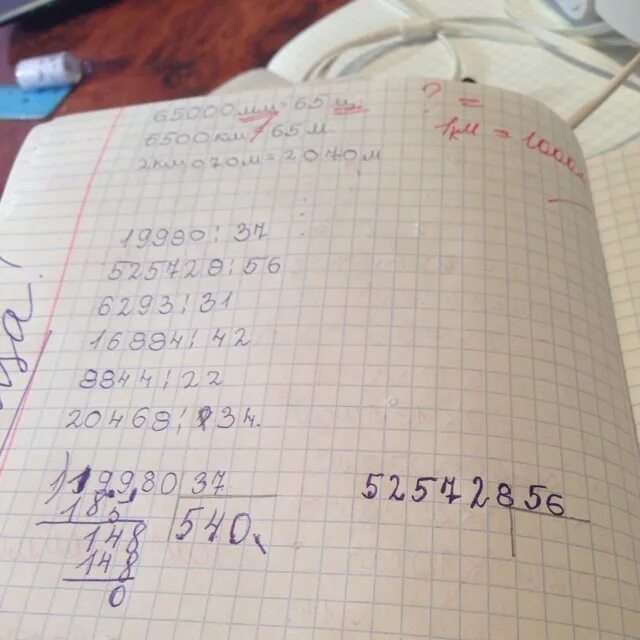 65000мм=65м. ? =
6500км>65м. 1км = 1000м
2км070м=2070м
19980:37
525728:56
6293:31
16884:42
8844:22
20468:34.
1) 19980 37
185 540
148
148
0
525728 56